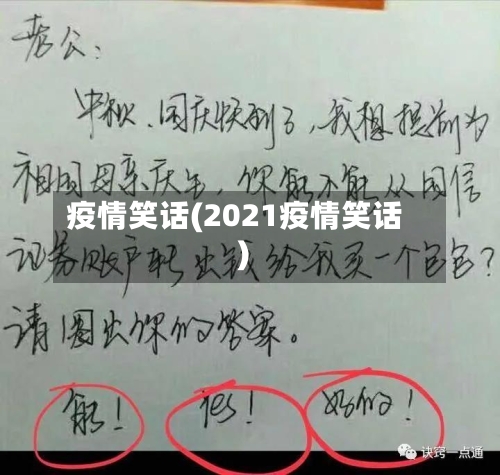 老公：
中秋、国庆快到了，我想提前为
祖国母亲庆生，你能不能从国信
疫情笑话(2021疫情笑话
)
证券账户转出钱给我买一个包包？
请圈出你的答案。
能！ yes！ 好的！
诀窍一点通